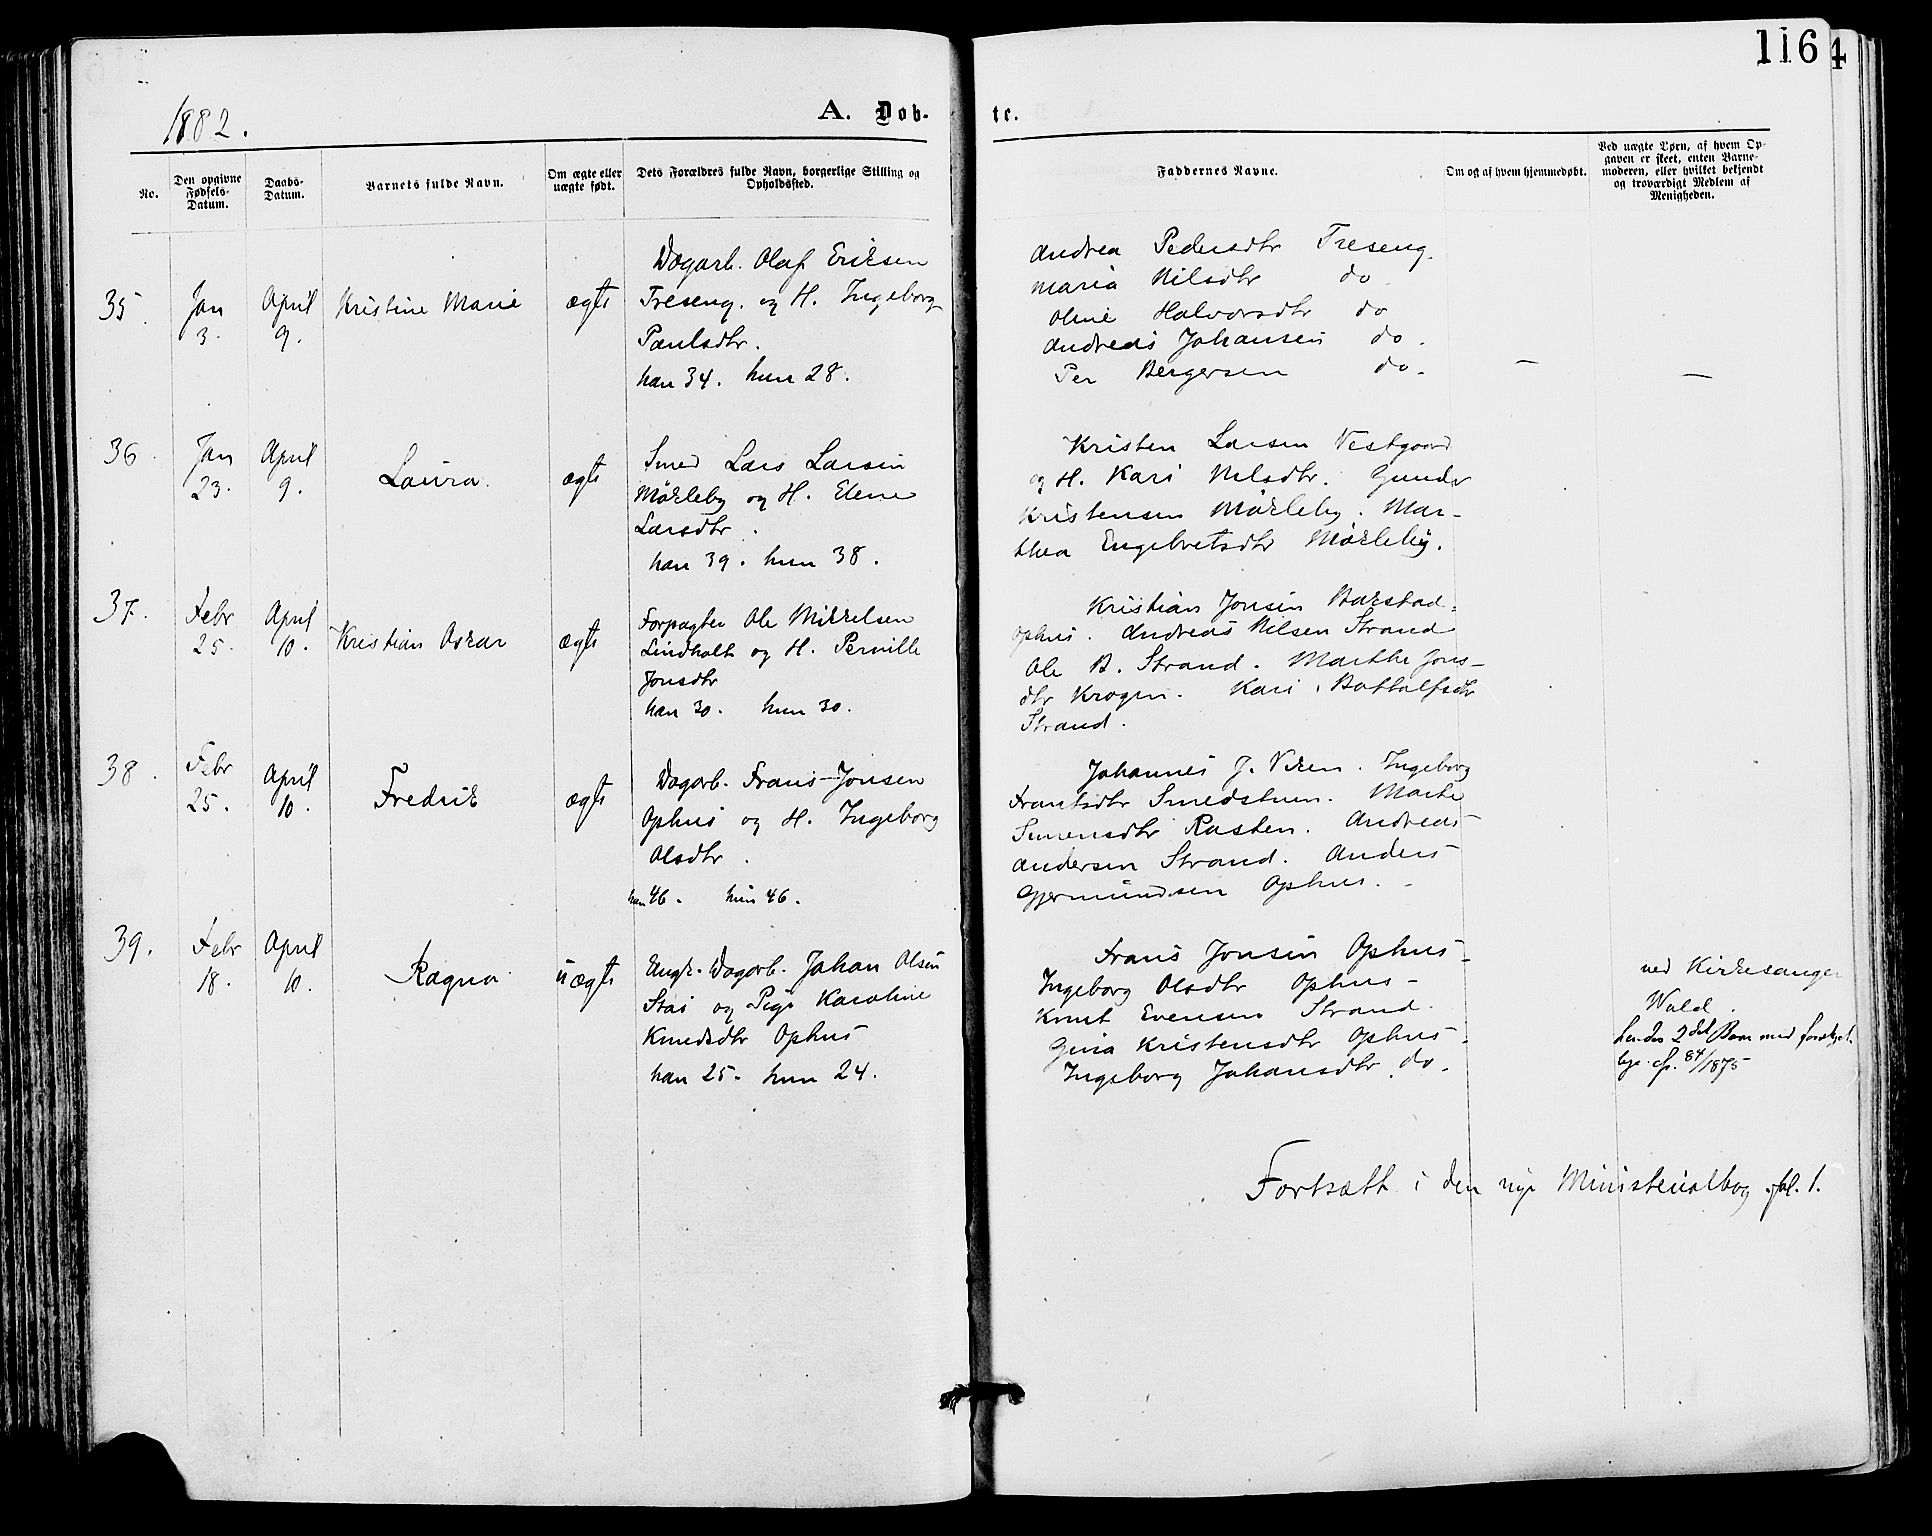 116
4
1882.
A. Døb-
te.
No.
Den opgivne Fødsels-Datum.
Daabs-Datum.
Barnets fulde Navn.
Om ægte eller uægte født.
Dets Forældres fulde Navn, borgerlige Stilling og Opholdssted.
Faddernes Navne.
Om og af hvem hjemmedøbt.
Ved uægte Børn, af hvem Op-
gaven er skeet, enten Barne-
moderen, eller hvilket bekjendt
og troværdigt Medlem af
Menigheden.
35.
Jan
3.
April
9.
Kristine Marie
ægte
Dagarb. Olaf Eriksen
Treseng. og H. Ingeborg
Paulsdtr.
han 34. hun 28.
Andrea Pedersdtr Treseng.
Maria Nilsdtr do
Oline Halvorsdtr do
Andreas Johansen do.
Per Bergersen do.
—
—
36.
Jan
23.
April
9.
Laura.
ægte
Smed Lars Larsen
Mørkeby og H. Elene
Larsdtr.
han 39. hun 38.
Kristen Larsen Vestgaard
og H. Kari Nilsdtr. Gunder
Kristensen Mørkeby. Mar-
thea Engebretsdtr Mørkeby.
37.
Febr
25.
April
10.
Kristian Oskar
ægte
Forpagter Ole Mikkelsen
Lindholt og H. Pernille
Jonsdtr
han 30. hun 30.
Kristian Jonsen Bakstad.
Ophus. Andreas Nilsen Strand
Ole B. Strand. Marthe Jons-
dtr Krogen. Kari Bottolfsdtr
Strand.
38.
Febr
25.
April
10.
Fredrik
ægte
Dagarb. Frans Jonsen
Ophus og H. Ingeborg
Olsdtr.
han 46. hun 46.
Johannes J. Viken. Ingeborg
Frantsdtr Smedstuen. Marte
Simensdtr Rasten. Andreas
Andersen Strand. Anders
Gjermundsen Ophus.
39.
Febr
18.
April
10.
Ragna
uægte
Ungk. Dagarb. Johan Olsen
Stai og Pige Karoline
Knudsdtr Ophus
han 25. hun 24.
Frans Jonsen Ophus
Ingeborg Olsdtr Ophus
Knut Evensen Strand.
Gina Kristensdtr Ophus.
Ingeborg Johansdtr do.
ved Kirkesanger
Wald.
hendes 2det Barn med forskjel.
84/1875
Fortsætt i den nye Ministerialbog fol. 1.